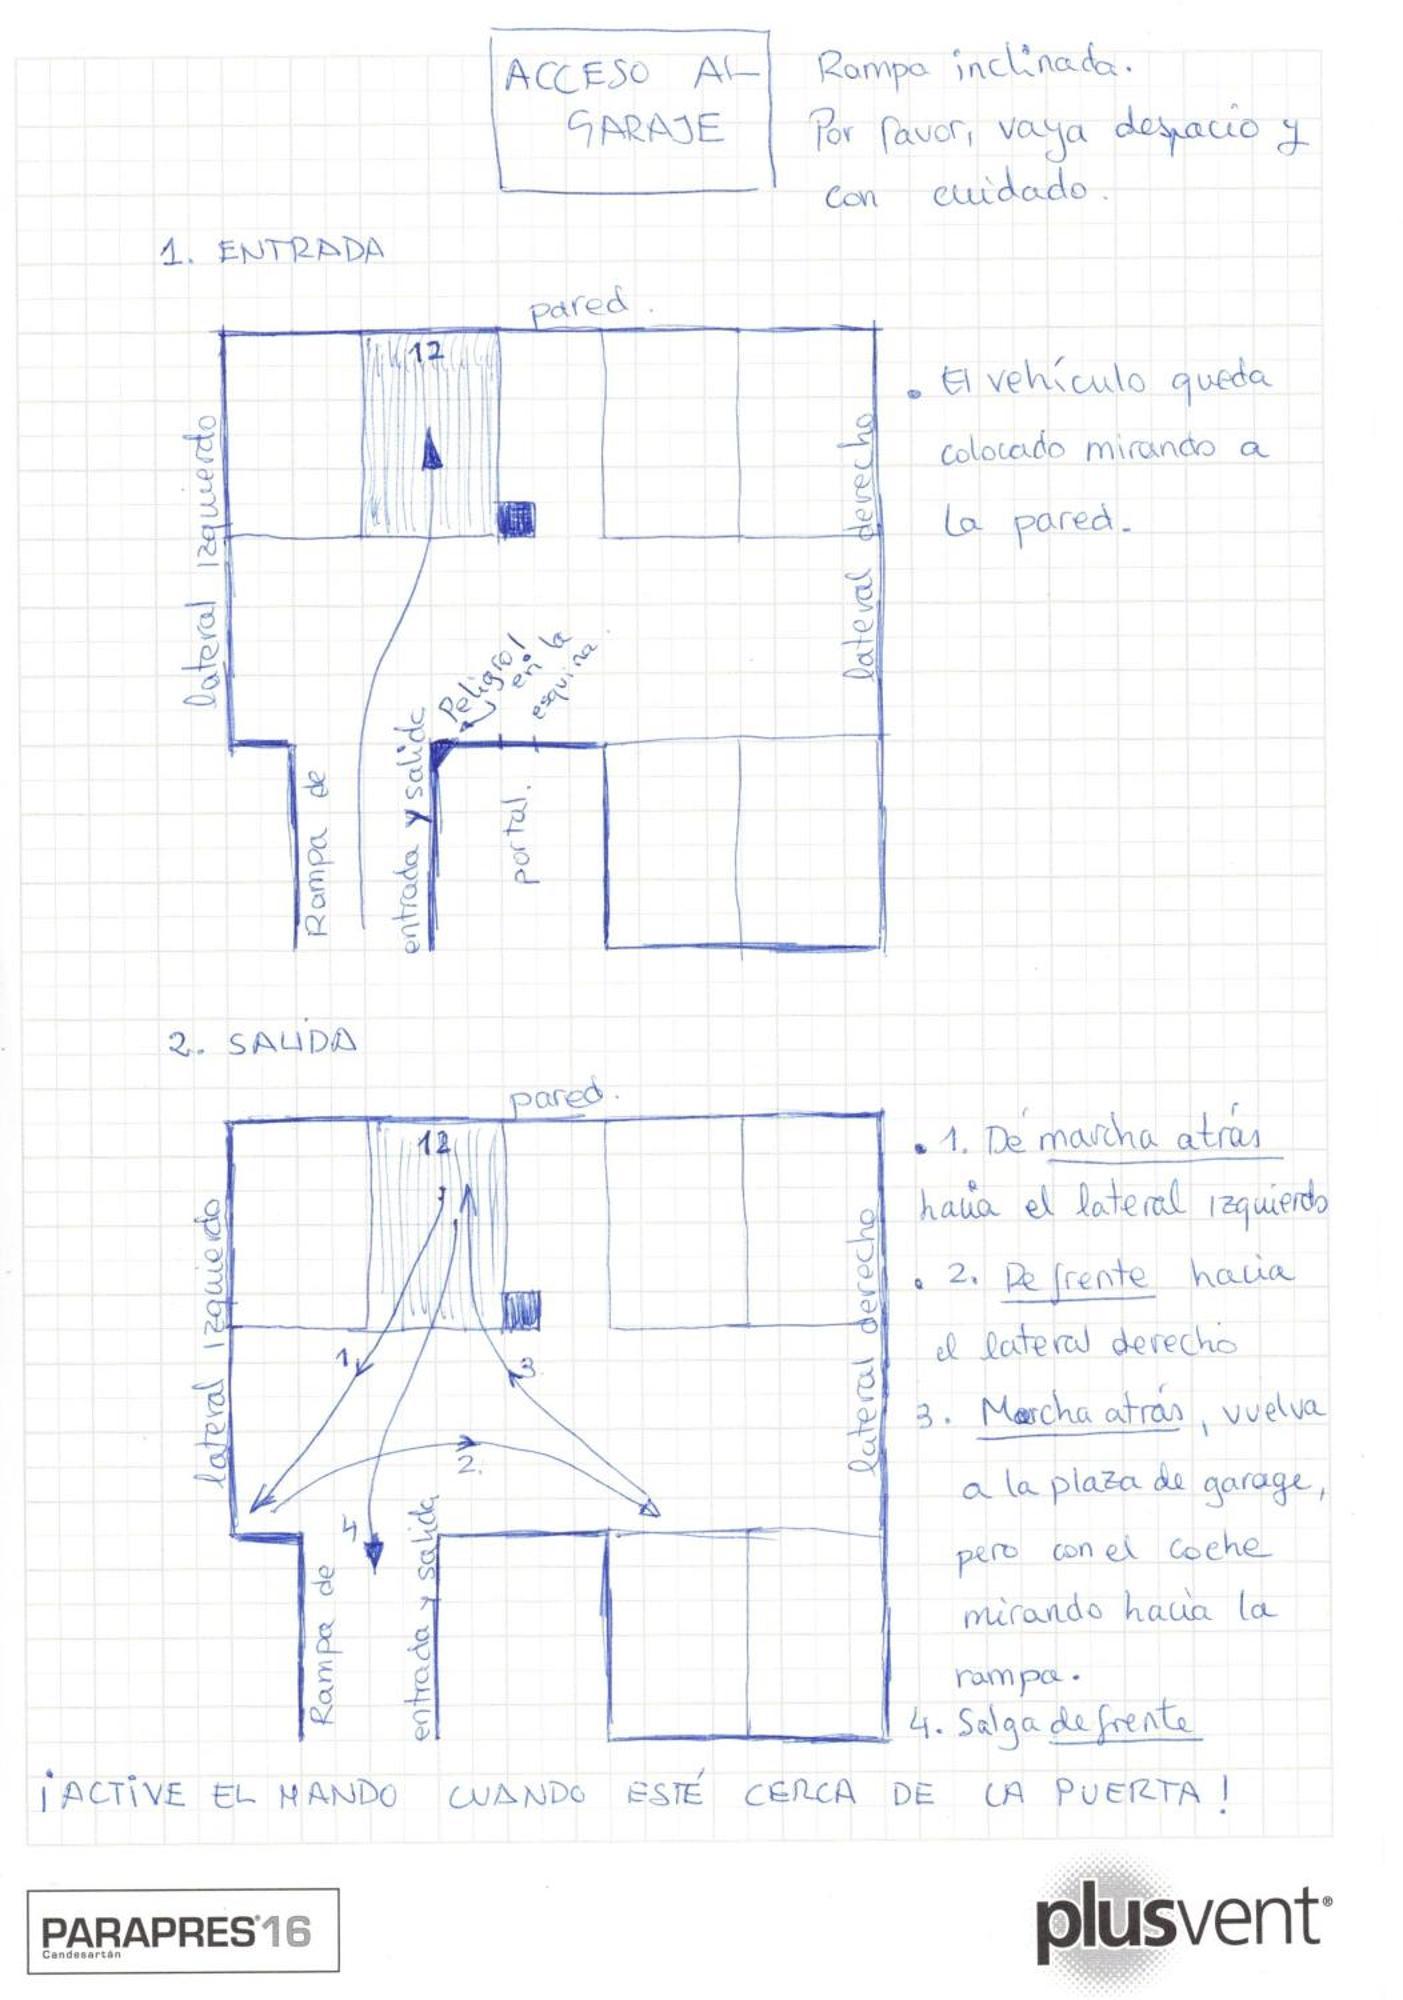 ACCESO AL
GARAJE
Rampa inclinada.
Por favor, vaya despacio y
con cuidado.
1. ENTRADA
pared.
12
lateral izquierdo
lateral derecho
• El vehículo queda
colocado mirando a
la pared.
Peligro!
en la
esquina.
Rampa de
entrada y salida
portal.
2. SALIDA
pared.
12
lateral izquierdo
lateral derecho
1
2.
3.
4
Rampa de
entrada y salida
• 1. De marcha atrás
hacia el lateral izquierdo
• 2. De frente hacia
el lateral derecho
3. Marcha atrás, vuelva
a la plaza de garage,
pero con el coche
mirando hacia la
rampa.
4. Salga de frente
¡ACTIVE EL MANDO CUANDO ESTÉ CERCA DE LA PUERTA!
PARAPRES®16
Candesartán
plusvent®